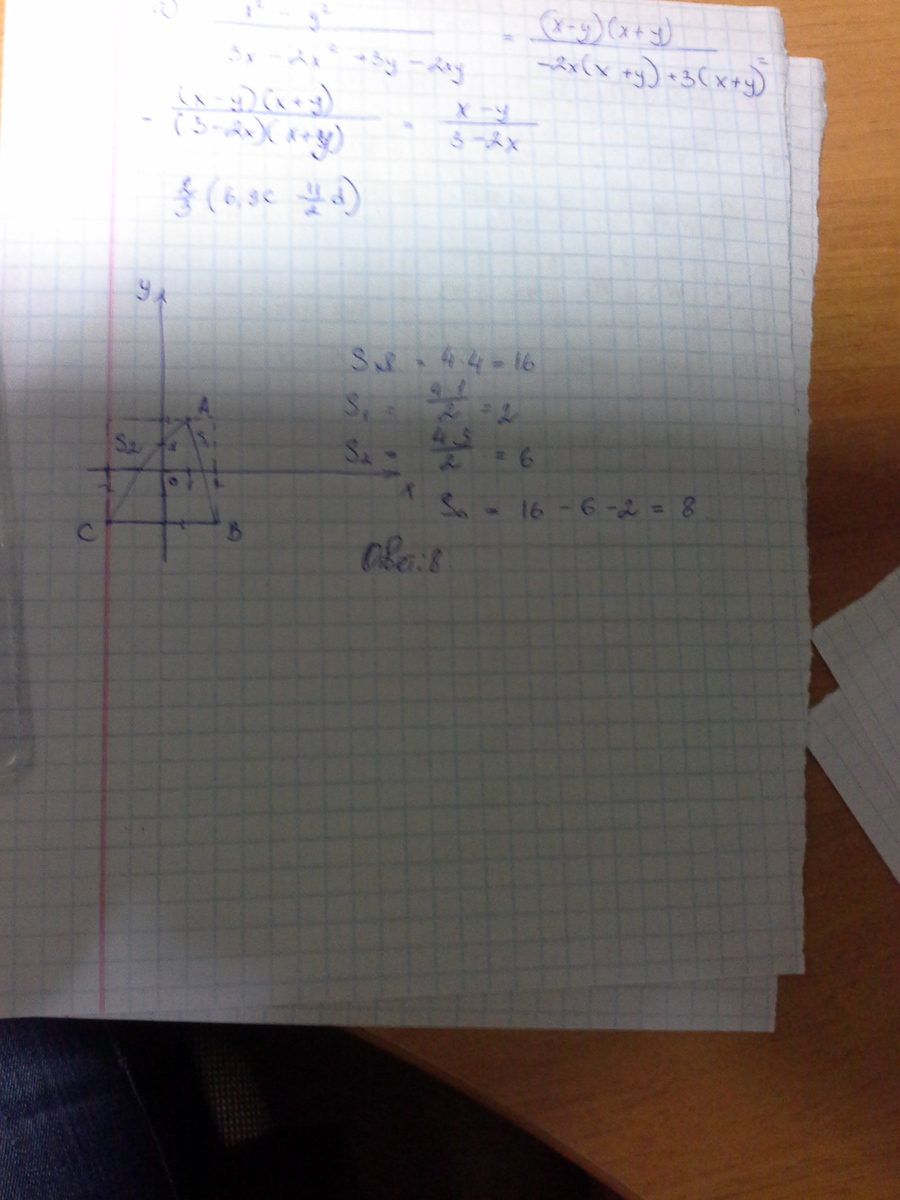 x² - y² / 3x - 2x² + 3y - 2xy = (x-y)(x+y) / -2x(x+y)+3(x+y) =
= (x-y)(x+y) / (3-2x)(x+y) = x-y / 3-2x
(6,9c 11/2 d)
y
A
S₂
0
x
C
B
S = 4·4 = 16
S₁ = 4·1 / 2 = 2
S₂ = 4·3 / 2 = 6
S = 16 - 6 - 2 = 8
Ответ: 8